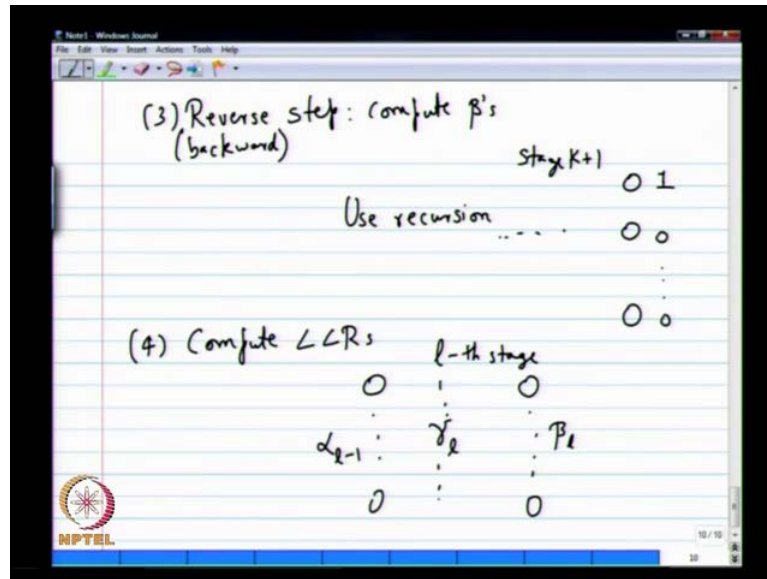 Note1 - Windows Journal
File Edit View Insert Actions Tools Help
(3) Reverse step: compute β's
(backward)
Stage K+1
O 1
Use recursion ..... O 0
O 0
(4) Compute LLRs
l-th stage
O O
α l-1 γ l β l
O O
NPTEL
10 / 10
10